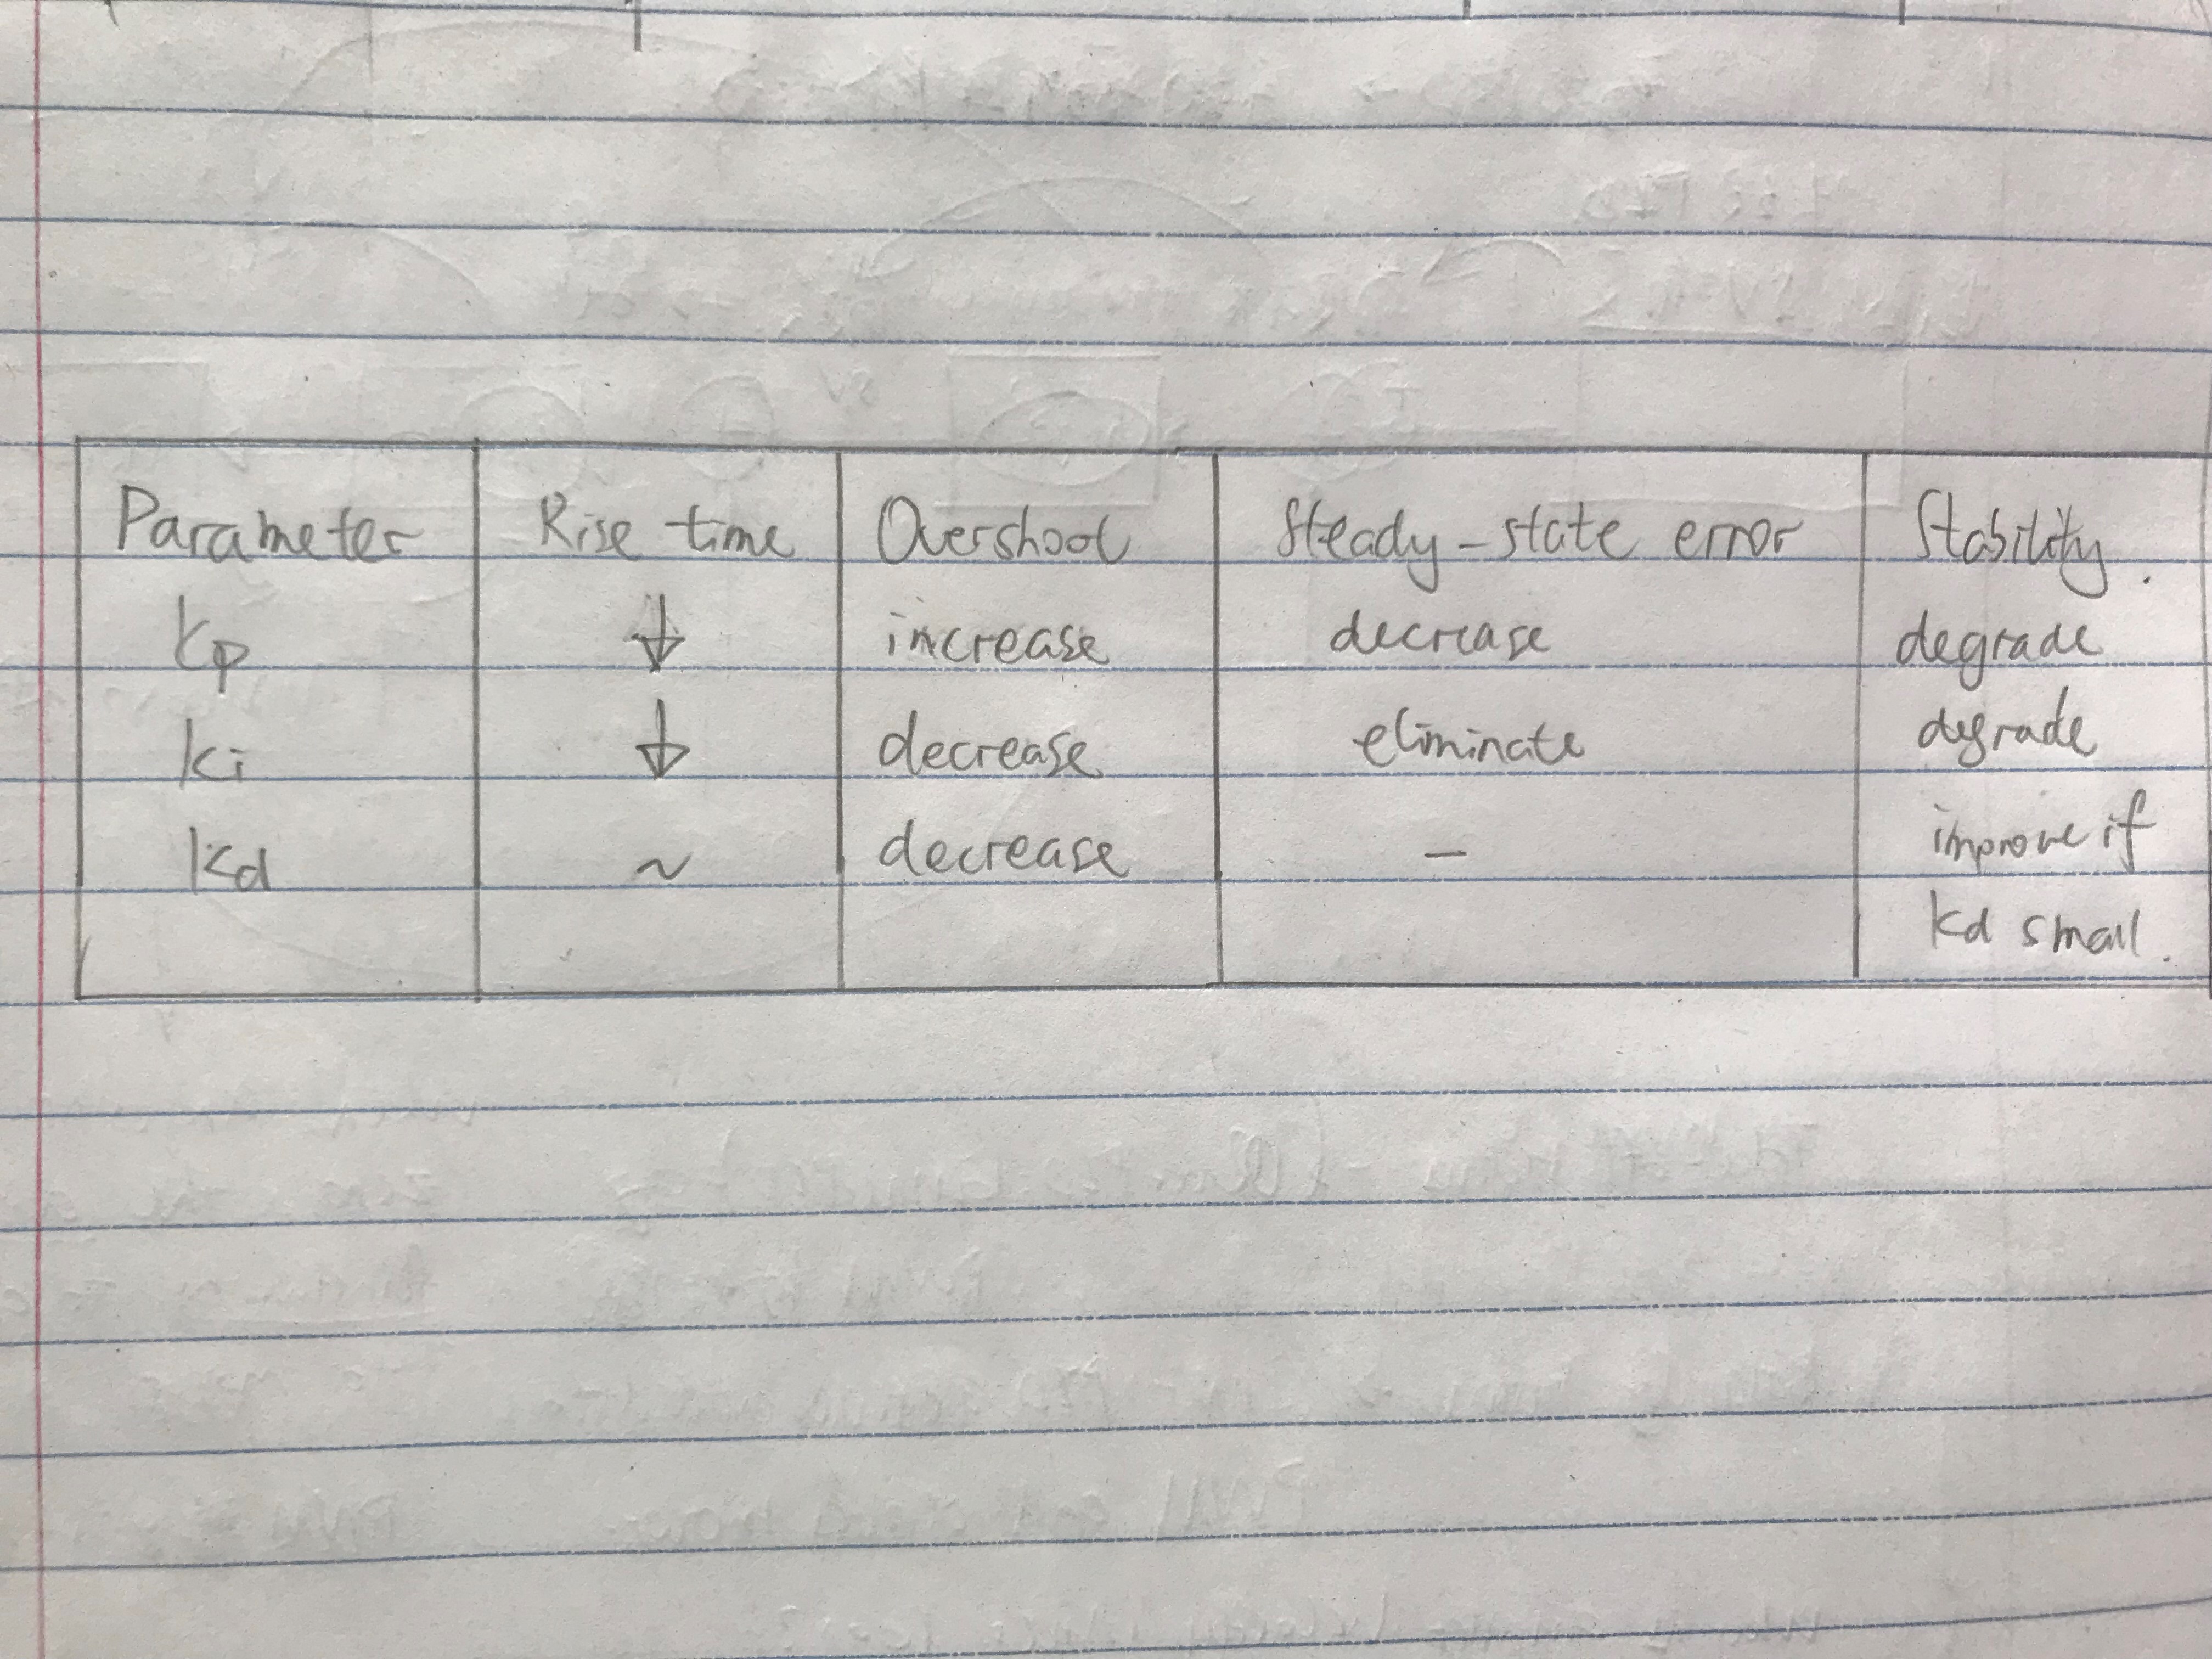 Parameter Rise time Overshoot Steady-state error Stability.
Kp ↓ increase decrease degrade
Ki ↓ decrease eliminate degrade
Kd ~ decrease - improve if
Kd small.